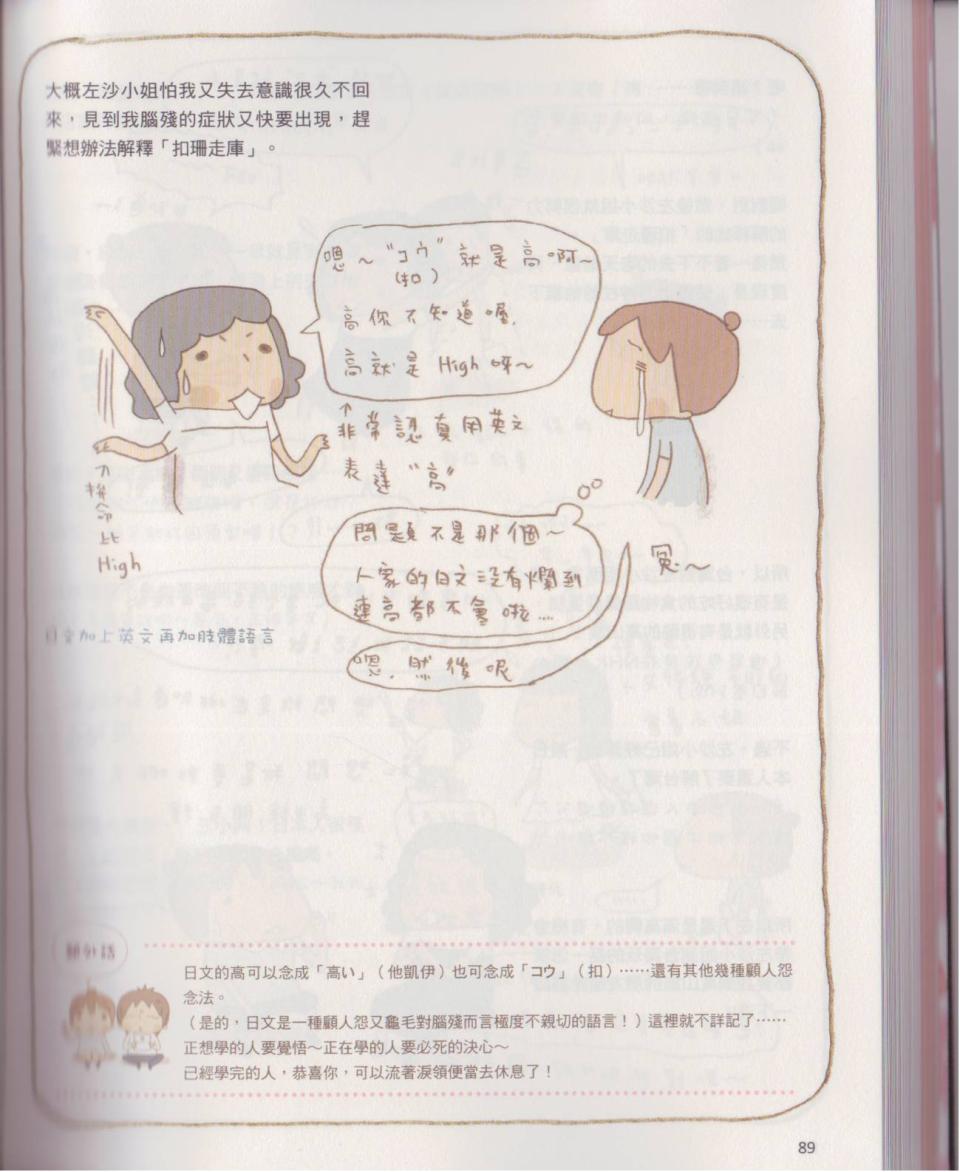 大概左沙小姐怕我又失去意識很久不回
來，見到我腦殘的症狀又快要出現，趕
緊想辦法解釋「扣珊走庫」。
嗯～“コウ”就是高啊～
（扣）
高你不知道喔，
高就是 High 呀～
↑
非常認真用英文
表達“高”
拚命比
High
問題不是那個～
人家的日文沒有爛到
連高都不會啦……
冤～
嗯，然後呢
日文加上英文再加肢體語言
題外話
日文的高可以念成「高い」（他凱伊）也可念成「コウ」（扣）……還有其他幾種顧人怨
念法。
（是的，日文是一種顧人怨又龜毛對腦殘而言極度不親切的語言！）這裡就不詳記了……
正想學的人要覺悟～正在學的人要必死的決心～
已經學完的人，恭喜你，可以流著淚領便當去休息了！
89